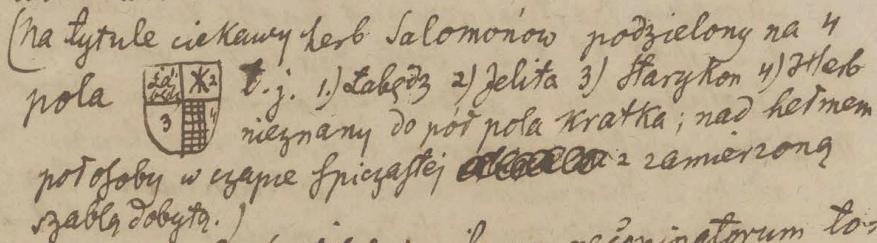 (Na tytule ciekawy herb Salomonów podzielony na 4
pola t. j. 1.) Łabędź 2) Jelita 3) Starykoń 4) Herb
Łabędź 2 3 4
nieznany do pół pola kratka; nad hełmem
pół osoby w czapce spiczastej z zamierzoną
szablą dobytą.)